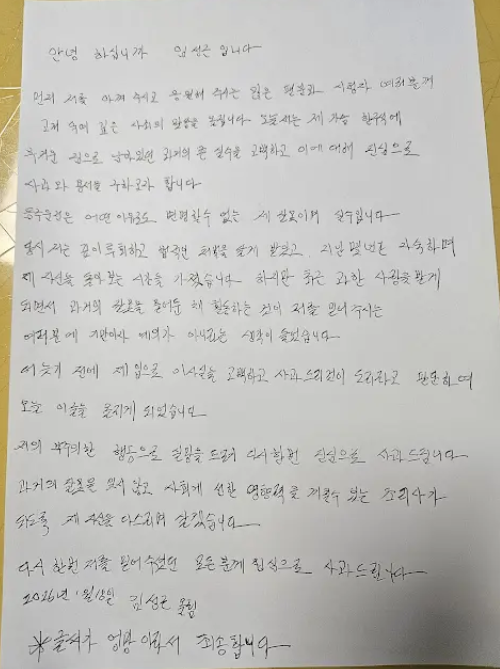 안녕 하십니까 임성근 입니다
먼저 저를 아껴 주시고 응원해 주시는 많은 분들과 시청자 여러분께
고개 숙여 깊은 사죄의 말씀을 올립니다 오늘 저는 제 가슴 한구석에
무거운 짐으로 남아있던 과거의 큰 실수를 고백하고 이에 대해 진심으로
사과와 용서를 구하고자 합니다
음주운전은 어떤 이유로도 변명할수 없는 제 잘못이며 실수입니다
당시 저는 깊이 후회하고 법적인 처벌을 달게 받았고, 지난 몇년간 자숙하며
제 자신을 돌아보는 시간을 가졌습니다 하지만 최근 과한 사랑을 받게
되면서 과거의 잘못을 묻어둔 채 활동하는 것이 저를 믿어주시는
여러분에 기만이자 예의가 아니라는 생각이 들었습니다
더 늦기 전에 제 입으로 이사실을 고백하고 사과드리는것이 도리라고 판단하여
오늘 이글을 올리게 되었습니다
저의 부주의한 행동으로 실망을 드려 다시한번 진심으로 사과드립니다
과거의 잘못을 잊지 않고 사회에 선한 영향력을 끼칠수 있는 조리사가
되도록 제 자신을 다스리며 살겠습니다
다시 한번 저를 믿어주셨던 모든분께 진심으로 사과드립니다
2026년 1월18일 임성근 올림
※글씨가 엉망 이라서 죄송합니다